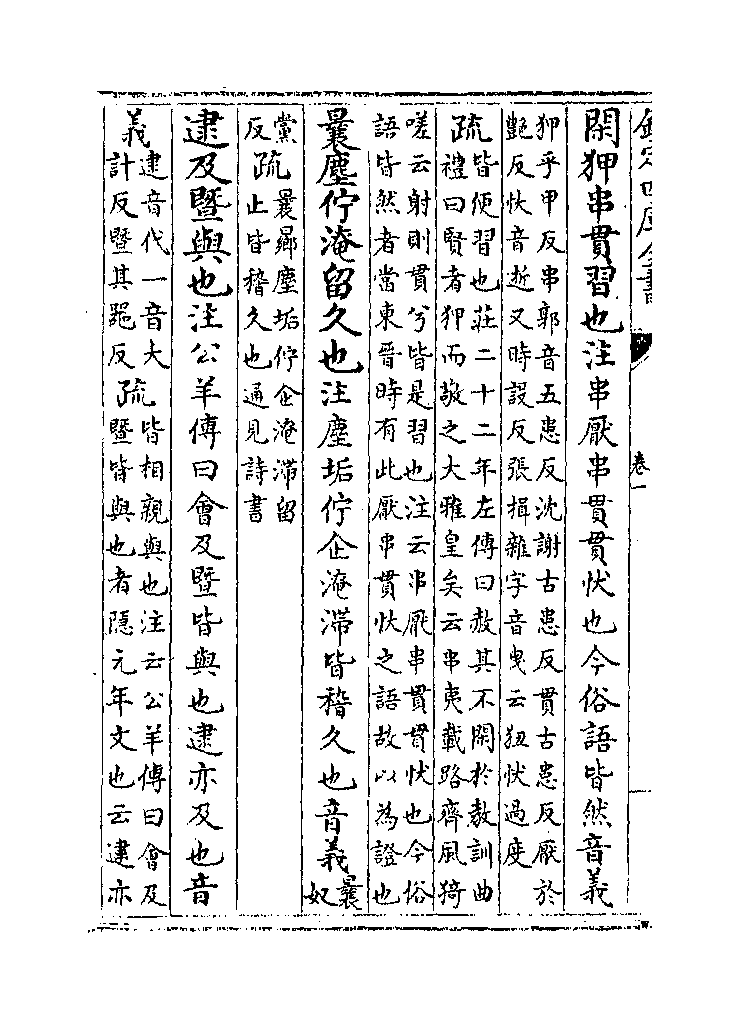 欽定四庫全書
卷一
閑狎串貫習也注串厭串貫貫忕也今俗語皆然音義
狎乎甲反串郭音五患反沈謝古患反貫古患反厭於
艶反忕音逝又時設反張揖雜字音曵云狃忕過度
疏皆便習也莊二十二年左傳曰赦其不閑於敎訓曲
禮曰賢者狎而敬之大雅皇矣云串夷載路齊風猗
嗟云射則貫兮皆是習也注云串厭串貫貫忕也今俗
語皆然者當東晉時有此厭串貫忕之語故以為證也
曩塵佇淹留久也注塵垢佇企淹滯皆稽久也音義曩奴
黨反疏曩曏塵垢佇企淹滯留
止皆稽久也通見詩書
逮及暨與也注公羊傳曰會及暨皆與也逮亦及也音
義逮音代一音大
計反暨其器反疏皆相親與也注云公羊傳曰會及
暨皆與也者隱元年文也云逮亦